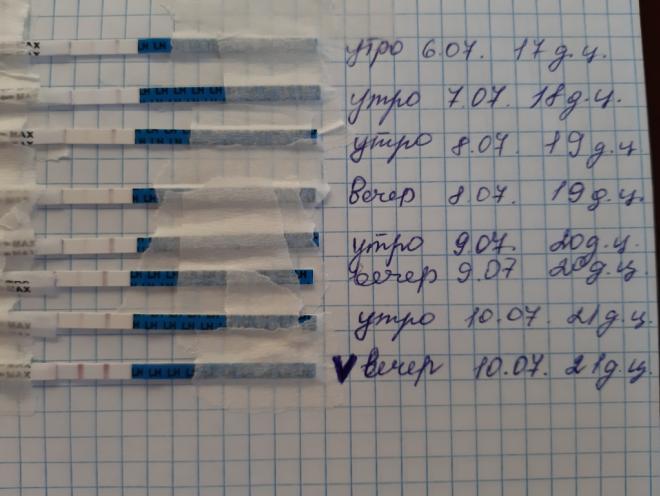 MAX утро 6.07. 17 д.ц.
LH LH LH LH утро 7.07. 18 д.ц.
MAX утро 8.07. 19 д.ц
LH вечер 8.07. 19 д.ц.
LH утро 9.07. 20 д.ц.
MAX LH LH вечер 9.07 20 д.ц.
MAX LH LH LH LH утро 10.07. 21 д.ц.
MAX LH LH LH V вечер 10.07. 21 д.ц.